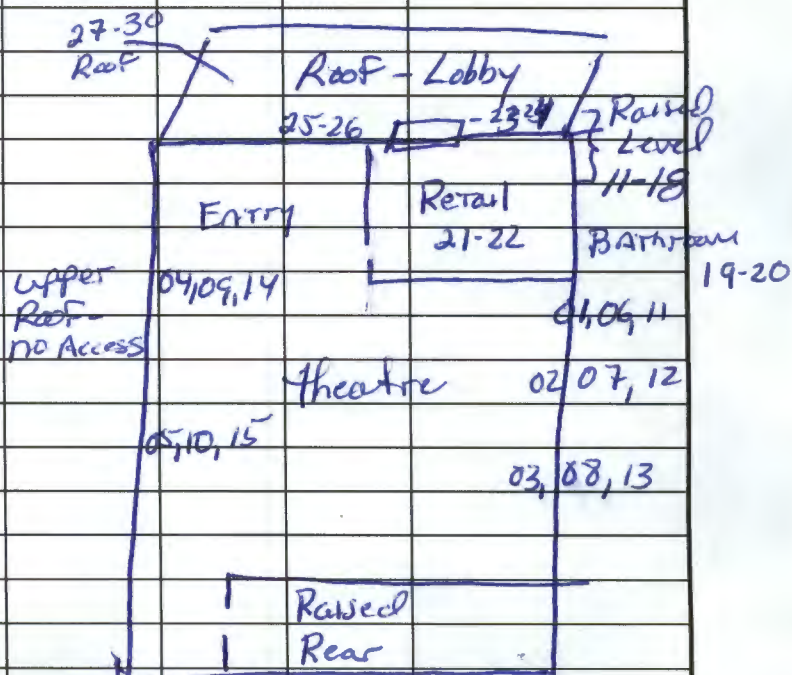 27-30
Roof
Roof - Lobby
25-26
Raised
Level
11-18
Entry
Retail
21-22
Bathroom
19-20
upper
Roof-
no Access
04,09,14
01,06,11
theatre
02 07, 12
05,10,15
03, 08, 13
Raised
Rear